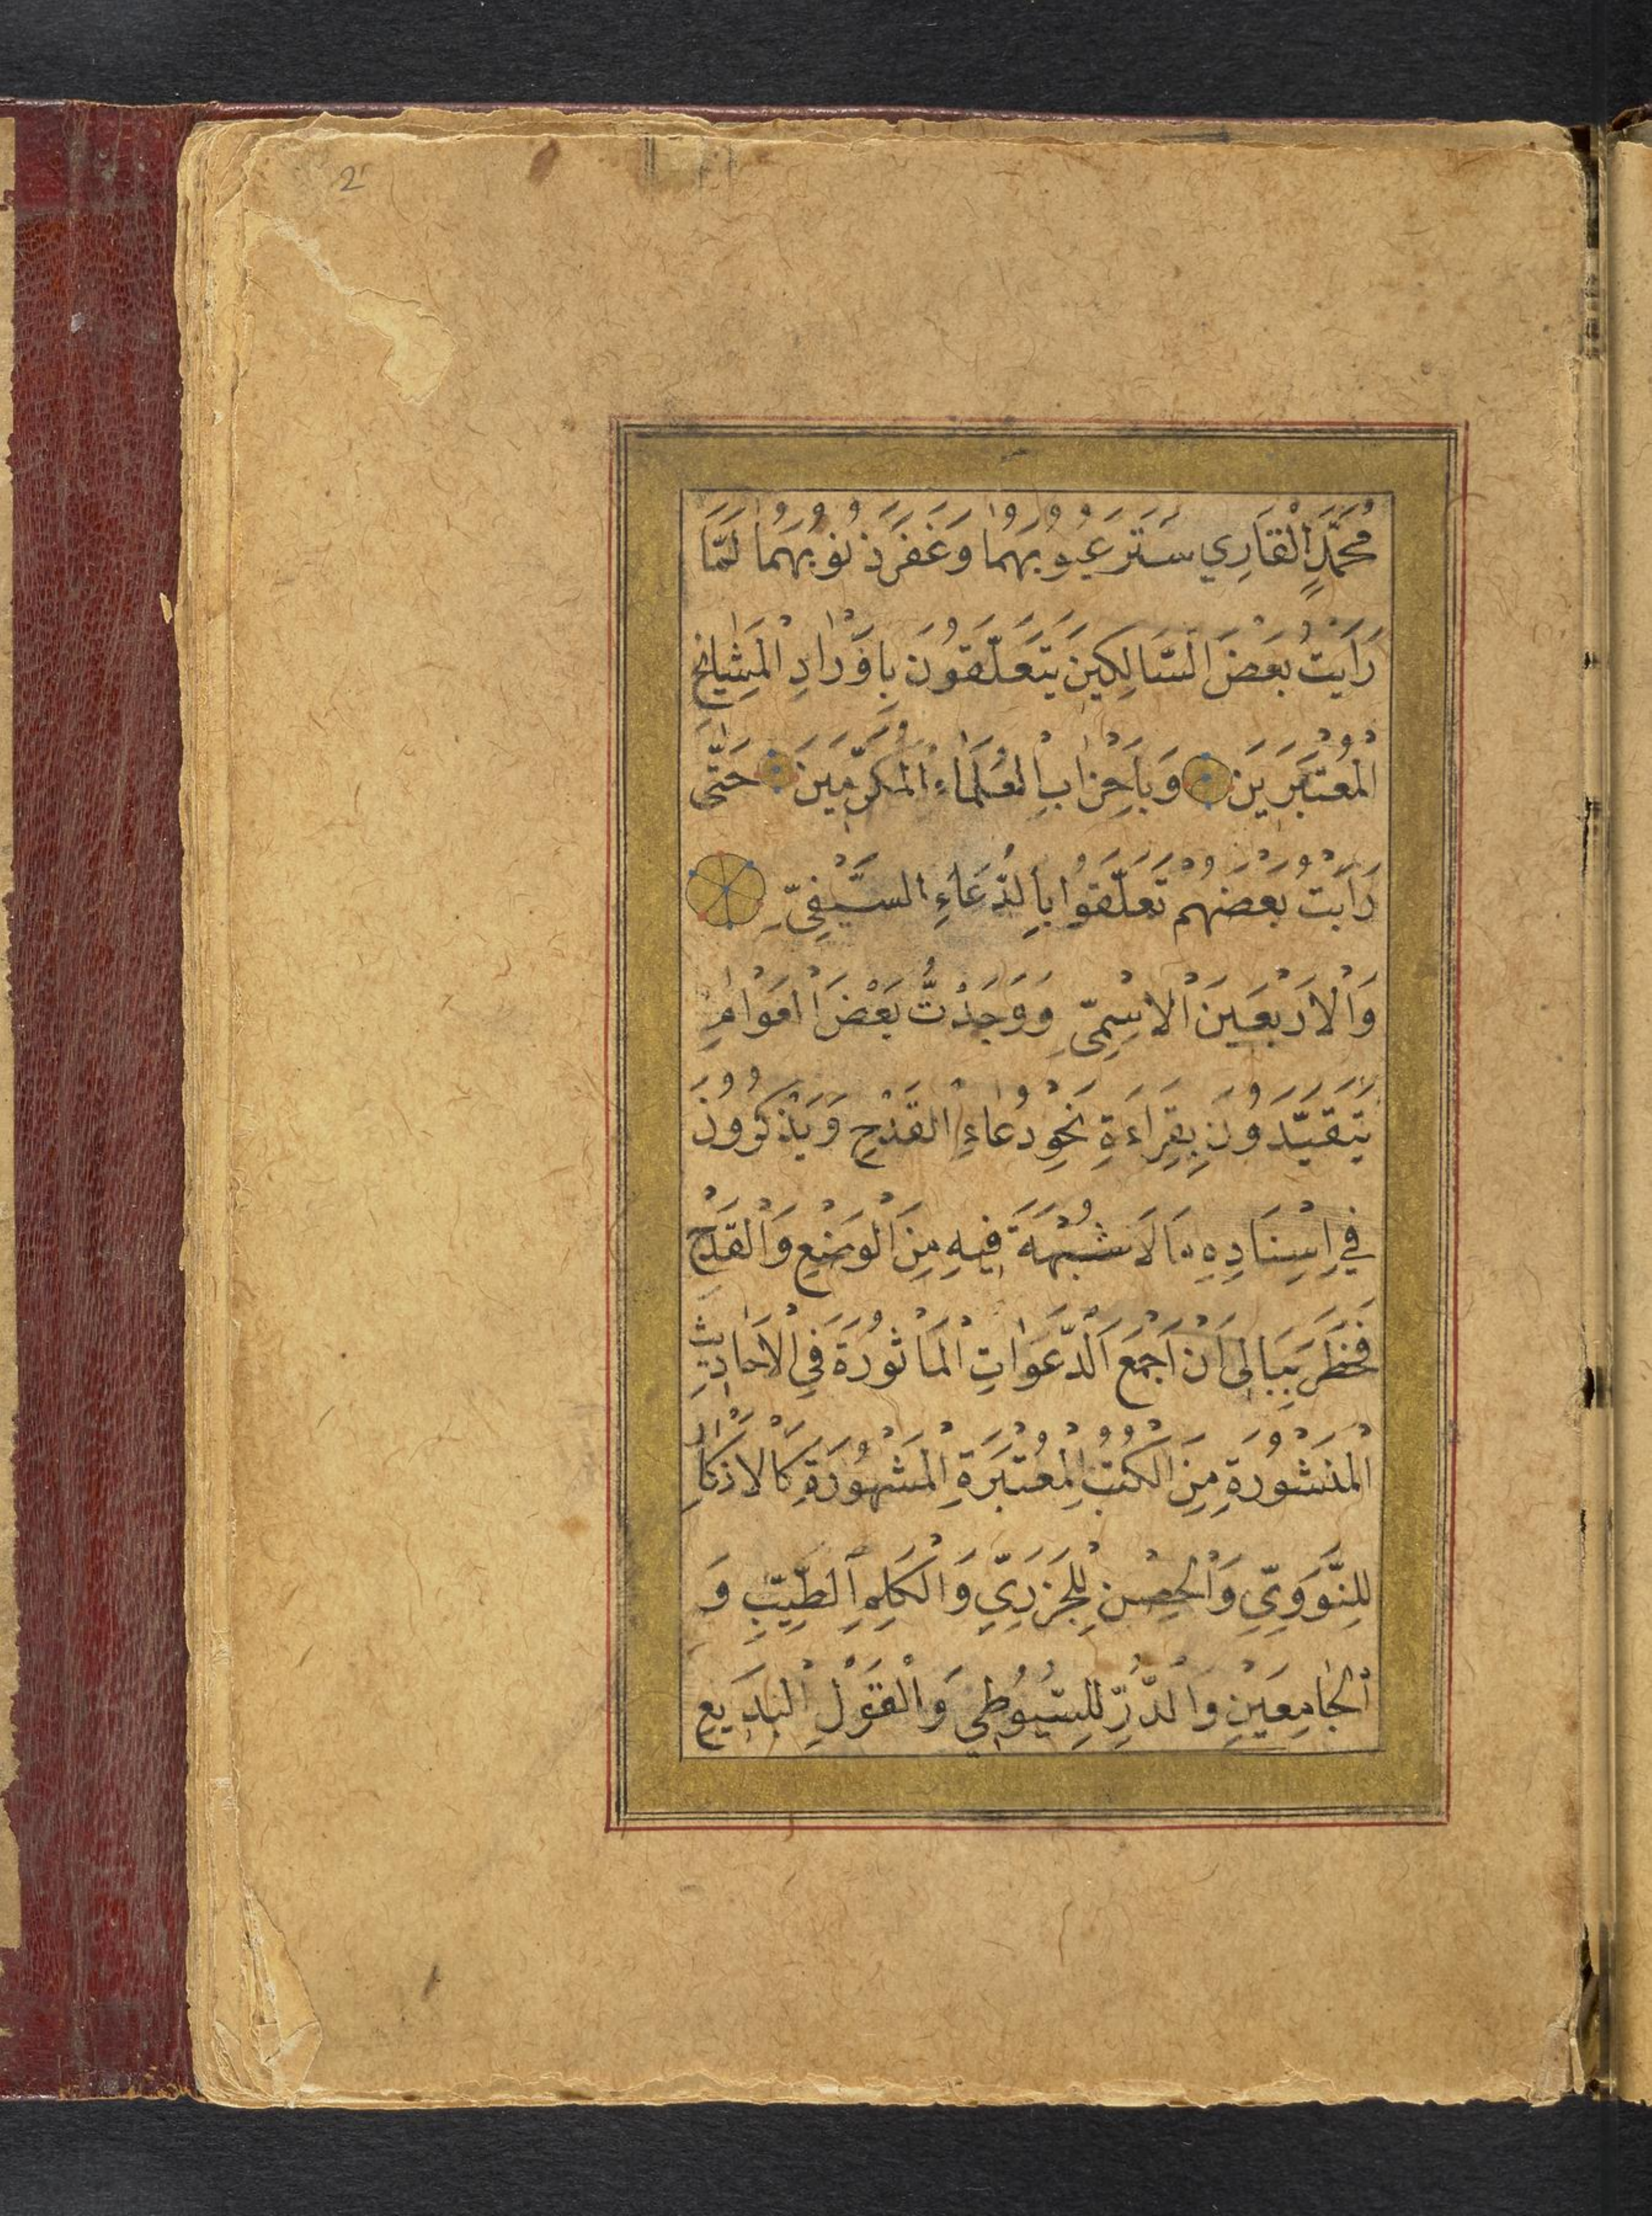 2
مُحَمَّدٍ الْقَارِي سَتَرَ عُيُوبَهُمَا وَغَفَرَ ذُنُوبَهُمَا لَمَّا
رَاَيْتُ بَعْضَ السَّالِكِينَ يَتَعَلَّقُونَ بِاَوْرَادِ الْمَشَايِخِ
الْمُعْتَبَرِينَ وَبِاَحْزَابِ الْعُلَمَاءِ الْمُكَرَّمِينَ حَتَّى
رَاَيْتُ بَعْضَهُمْ تَعَلَّقُوا بِالدُّعَاءِ السَّيْفِيِّ
وَالْاَرْبَعِينَ الْاِسْمِيِّ وَوَجَدْتُ بَعْضَ الْعَوَامِ
يَتَقَيَّدُونَ بِقِرَاءَةِ نَحْوِ دُعَاءِ الْقَدْحِ وَيَذْكُرُونَ
فِي اِسْنَادِهِ مَا لَا شُبْهَةَ فِيهِ مِنَ الْوَضْعِ وَالْقَدْحِ
فَخَطَرَ بِبَالِي اَنْ اَجْمَعَ الدَّعَوَاتِ الْمَاْثُورَةَ فِي الْاَحَادِيثِ
الْمَنْشُورَةِ مِنَ الْكُتُبِ الْمُعْتَبَرَةِ الْمَشْهُورَةِ كَالْاَذْكَارِ
لِلنَّوَوِيِّ وَالْحِصْنِ لِلْجَزَرِيِّ وَالْكَلِمِ الطَّيِّبِ وَ
الْجَامِعَيْنِ وَالدُّرِّ لِلسُّيُوطِي وَالْقَوْلِ الْبَدِيعِ